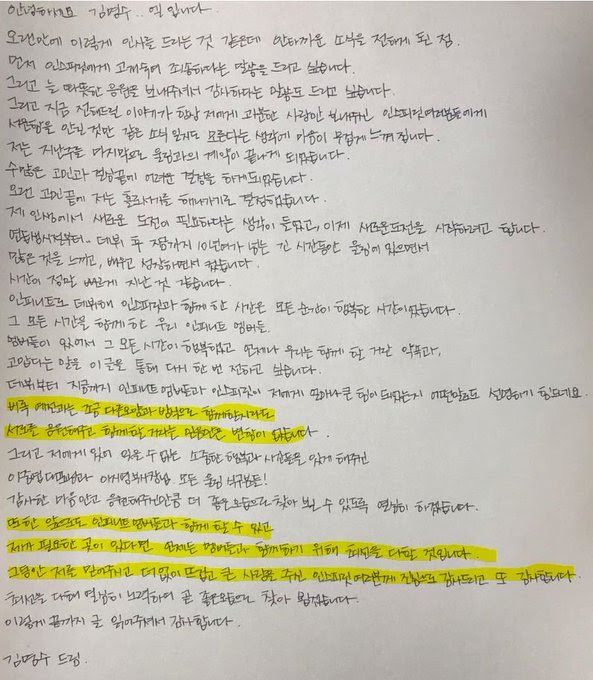 안녕하세요 김명수.. 엘 입니다.
오랜만에 이렇게 인사를 드리는 것 같은데 안타까운 소식을 전하게 된 점.
먼저 인스피릿에게 고개숙여 죄송하다는 말씀을 드리고 싶습니다.
그리고 늘 따뜻한 응원을 보내주셔서 감사하다는 말씀도 드리고 싶습니다.
그리고 지금 전해드릴 이야기가 항상 저에게 과분한 사랑만 보내주신 인스피릿여러분들에게
서운함을 안긴 것만 같은 소식 일지도 모른다는 생각에 마음이 무겁게 느껴집니다.
저는 지난주를 마지막으로 울림과의 계약이 끝나게 되었습니다.
수많은 고민과 결심끝에 어려운 결정을 하게되었습니다.
오랜 고민끝에 저는 홀로서기를 해나가기로 결정했습니다.
제 인생에서 새로운 도전이 필요하다는 생각이 들었고, 이제 새로운도전을 시작하려고 합니다.
연습생시절부터.. 데뷔 후 지금까지 10년여가 넘는 긴 시간동안 울림에 있으면서
많은 것을 느끼고, 배우고 성장하면서 컸습니다.
시간이 정말 빠르게 지난 것 같습니다.
인피니트로 데뷔해 인스피릿과 함께 한 시간은 모든 순간이 행복한 시간이었습니다.
그 모든 시간을 함께 한 우리 인피니트 멤버들.
멤버들이 있어서 그 모든 시간이 행복했고 언제나 우리는 함께 할 거란 약속과,
고맙다는 말을 이 글을 통해 다시 한 번 전하고 싶습니다.
데뷔부터 지금까지 인피니트멤버들과 인스피릿이 저에게 얼마나 큰 힘이 되었는지 어떤말로도 설명하기 힘드네요.
비록 예전과는 조금 다른모양과 방식으로 함께할지라도
서로를 응원해주고 함께할 거라는 믿음만은 변함이 없습니다.
그리고 저에게 있어 잊을 수 없는 소중한 행복과 시간들을 있게 해주신
이중엽대표님과 이지영부사장님 모든 울림 식구분들!
감사한 마음안고 응원해주신만큼 더 좋은모습으로 찾아 뵐 수 있도록 열심히 하겠습니다.
또한 앞으로도 인피니트멤버들과 함께 할 수 있고
제가 필요한 곳이 있다면 언제든 멤버들과 함께하기 위해 최선을 다할 것입니다.
그동안 저를 믿어주시고 더없이 뜨겁고 큰 사랑을 주신 인스피릿 여러분께 진심으로 감사드리고 또 감사합니다.
최선을 다해 열심히 노력하여 곧 좋은모습으로 찾아 뵙겠습니다.
이렇게 끝까지 글 읽어주셔서 감사합니다.
김명수 드림.